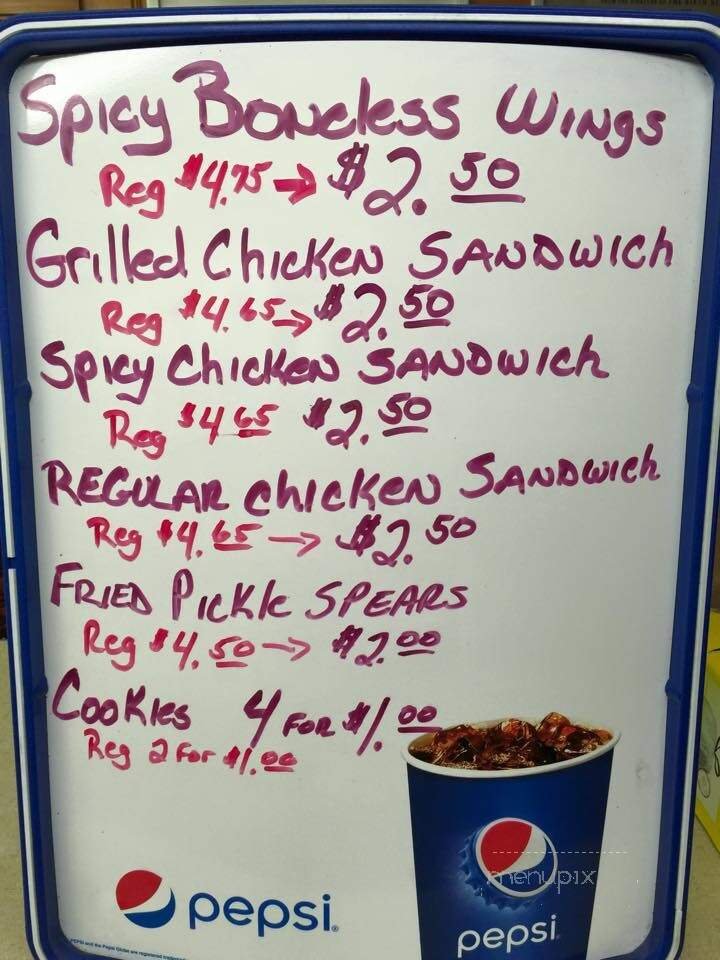 Spicy Boneless Wings
Reg $4.75 → $2.50
Grilled Chicken SANDWICH
Reg $4.65 → $2.50
Spicy Chicken SANDWICH
Reg $4.65 $2.50
REGULAR chicken SANDWICH
Reg $4.65 → $2.50
FRIED Pickle SPEARS
Reg $4.50 → $2.00
Cookies 4 FOR $1.00
Reg 2 For $1.00
menupix
pepsi
pepsi